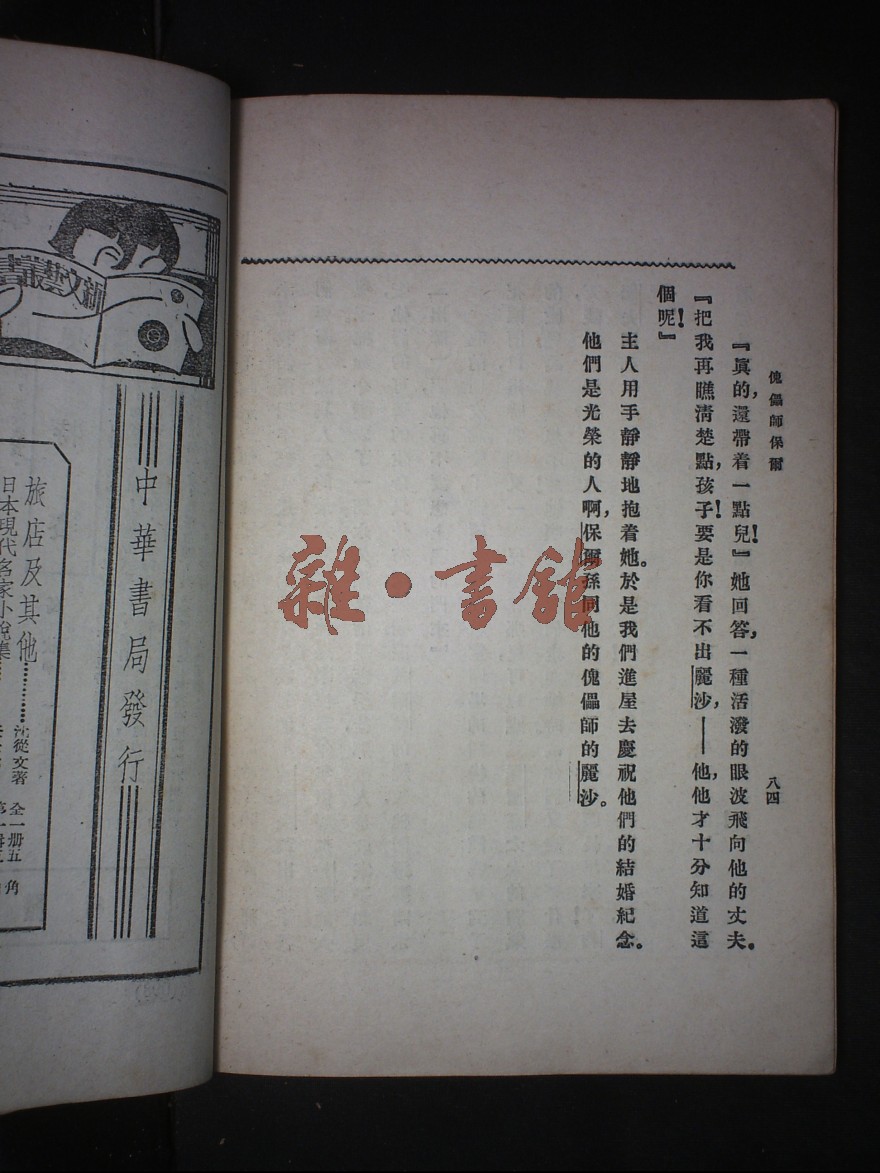 傀儡師保爾
八四
『眞的，還帶着一點兒！』她回答，一種活潑的眼波飛向他的丈夫。
『把我再瞧清楚點，孩子！要是你看不出麗沙，——他，他才十分知道這
個呢！』
主人用手靜靜地抱着她。於是我們進屋去慶祝他們的結婚紀念。
他們是光榮的人啊，保爾孫同他的傀儡師的麗沙。
雜·書館
新文藝叢書
中華書局發行
旅店及其他…………沈從文著 全一册五角
日本現代名家小說集